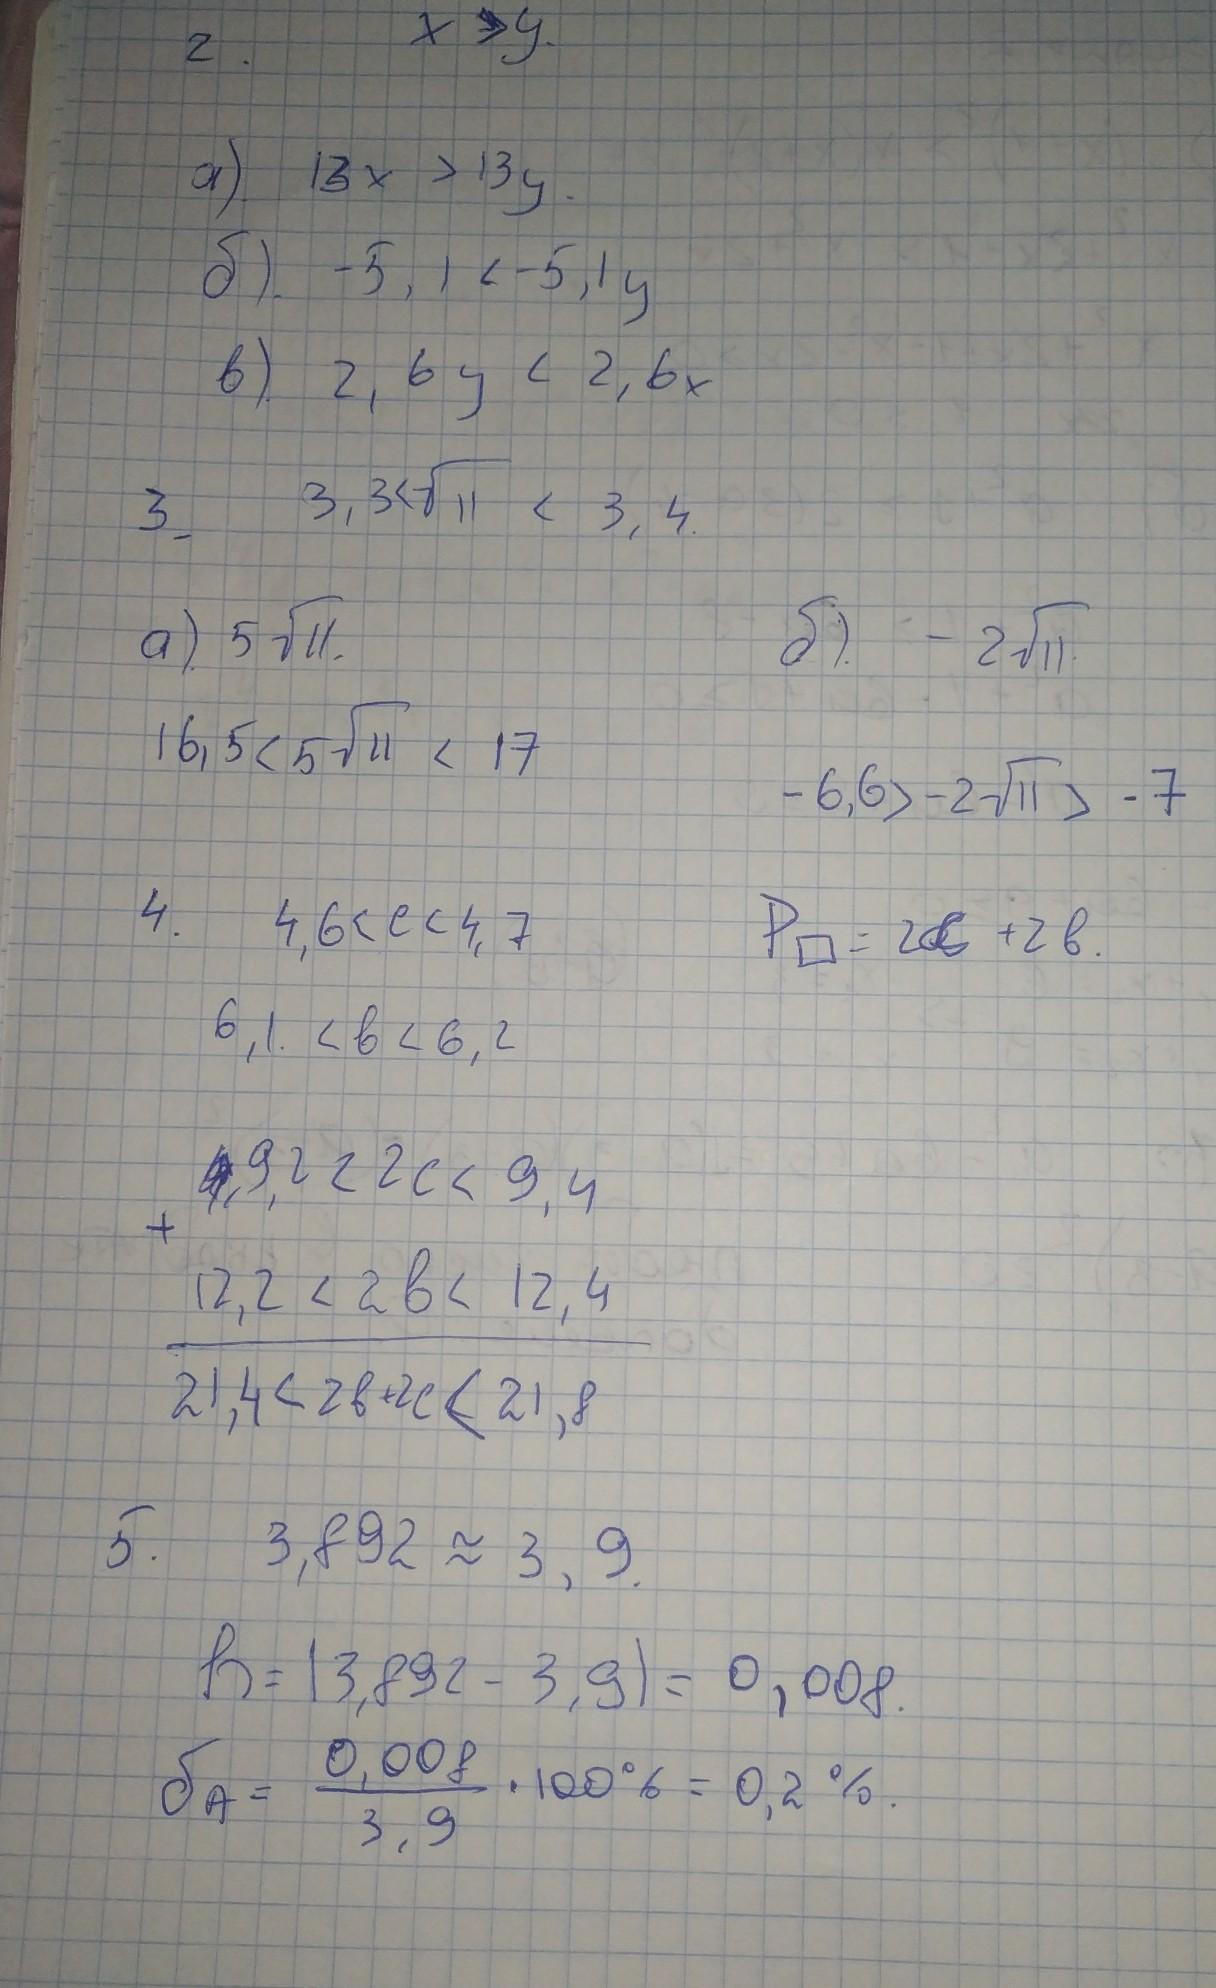 2. x > y.
а) 13x > 13y.
б). -5,1 < -5,1y
в) 2,6y < 2,6x
3. 3,3<√11 < 3,4.
а) 5√11. б). - 2√11.
16,5 < 5√11 < 17
-6,6 > -2√11 > -7
4. 4,6 < c < 4,7 P□ = 2c + 2в.
6,1. < в < 6,2
9,2 < 2c < 9,4
+
12,2 < 2в < 12,4
21,4 < 2в+2c < 21,8
5. 3,892 ≈ 3,9.
h = |3,892 - 3,9| = 0,008.
δA = 0,008/3,9 · 100% = 0,2%.